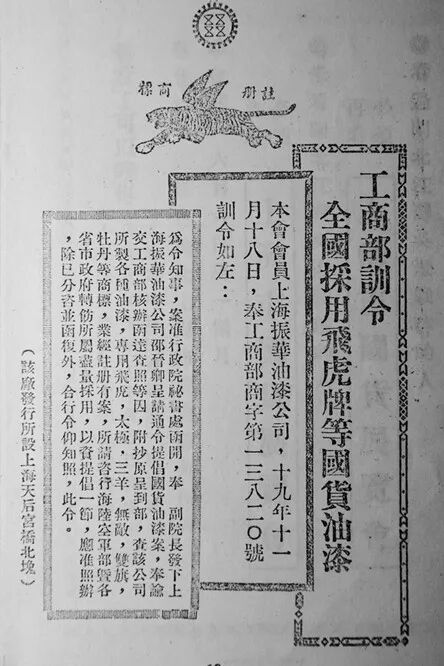 註冊 商標
工商部訓令
全國採用飛虎牌等國貨油漆
本會會員上海振華油漆公司，十九年十一
月十八日，奉工商部商字第一三八二〇號
訓令如左：
為令知事，案准行政院秘書處函開，奉 副院長發下上
海振華油漆公司邵晉卿呈請通令提倡國貨油漆案，奉諭
交工商部核辦函達查照等因，附抄原呈到部，查該公司
所製各種油漆，專用飛虎，太極，三羊，無敵，雙旗，
牡丹等商標，業經註册有案，所請咨行海陸空軍部暨各
省市政府轉飭所屬盡量採用，以資提倡一節，應准照辦
，除已分咨並函復外，合行令仰知照，此令。
（該廠發行所設上海天后宮橋北塊）